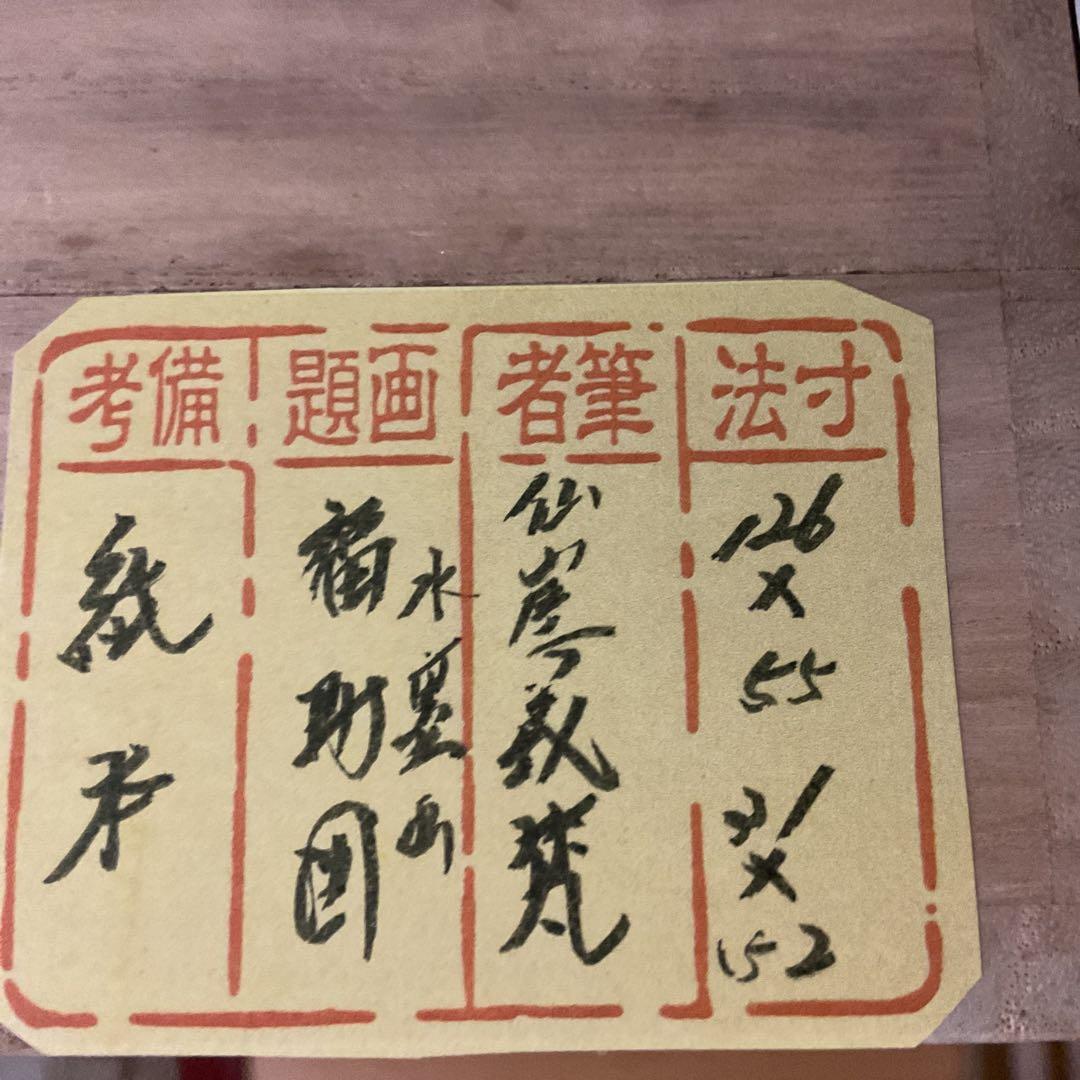 寸法
126
×
55
31
×
152
筆者
仙崖義梵
画題
水墨画
福財図
備考
紙本